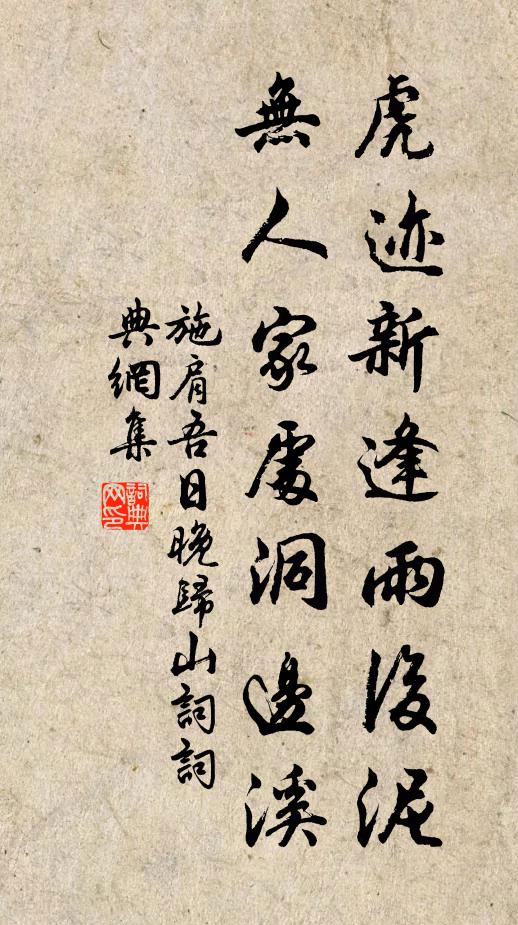 虎迹新逢雨後泥
無人家處洞邊溪
施肩吾日晚歸山詞詞
典網集
詞典
网印